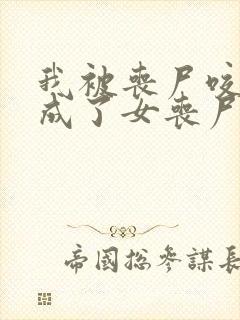 我被丧尸咬
成了女丧尸
帝國总参謀長